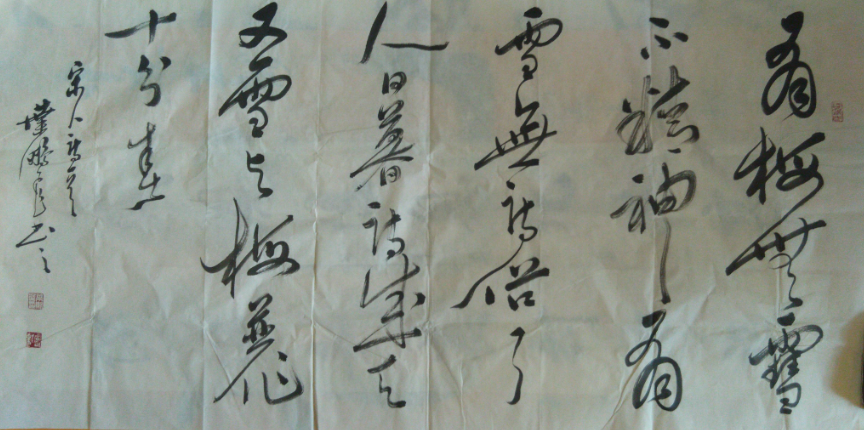 有梅無雪
不精神有
雪無詩俗了
人日暮詩成天
又雪与梅並作
十分春
宋人詩一首